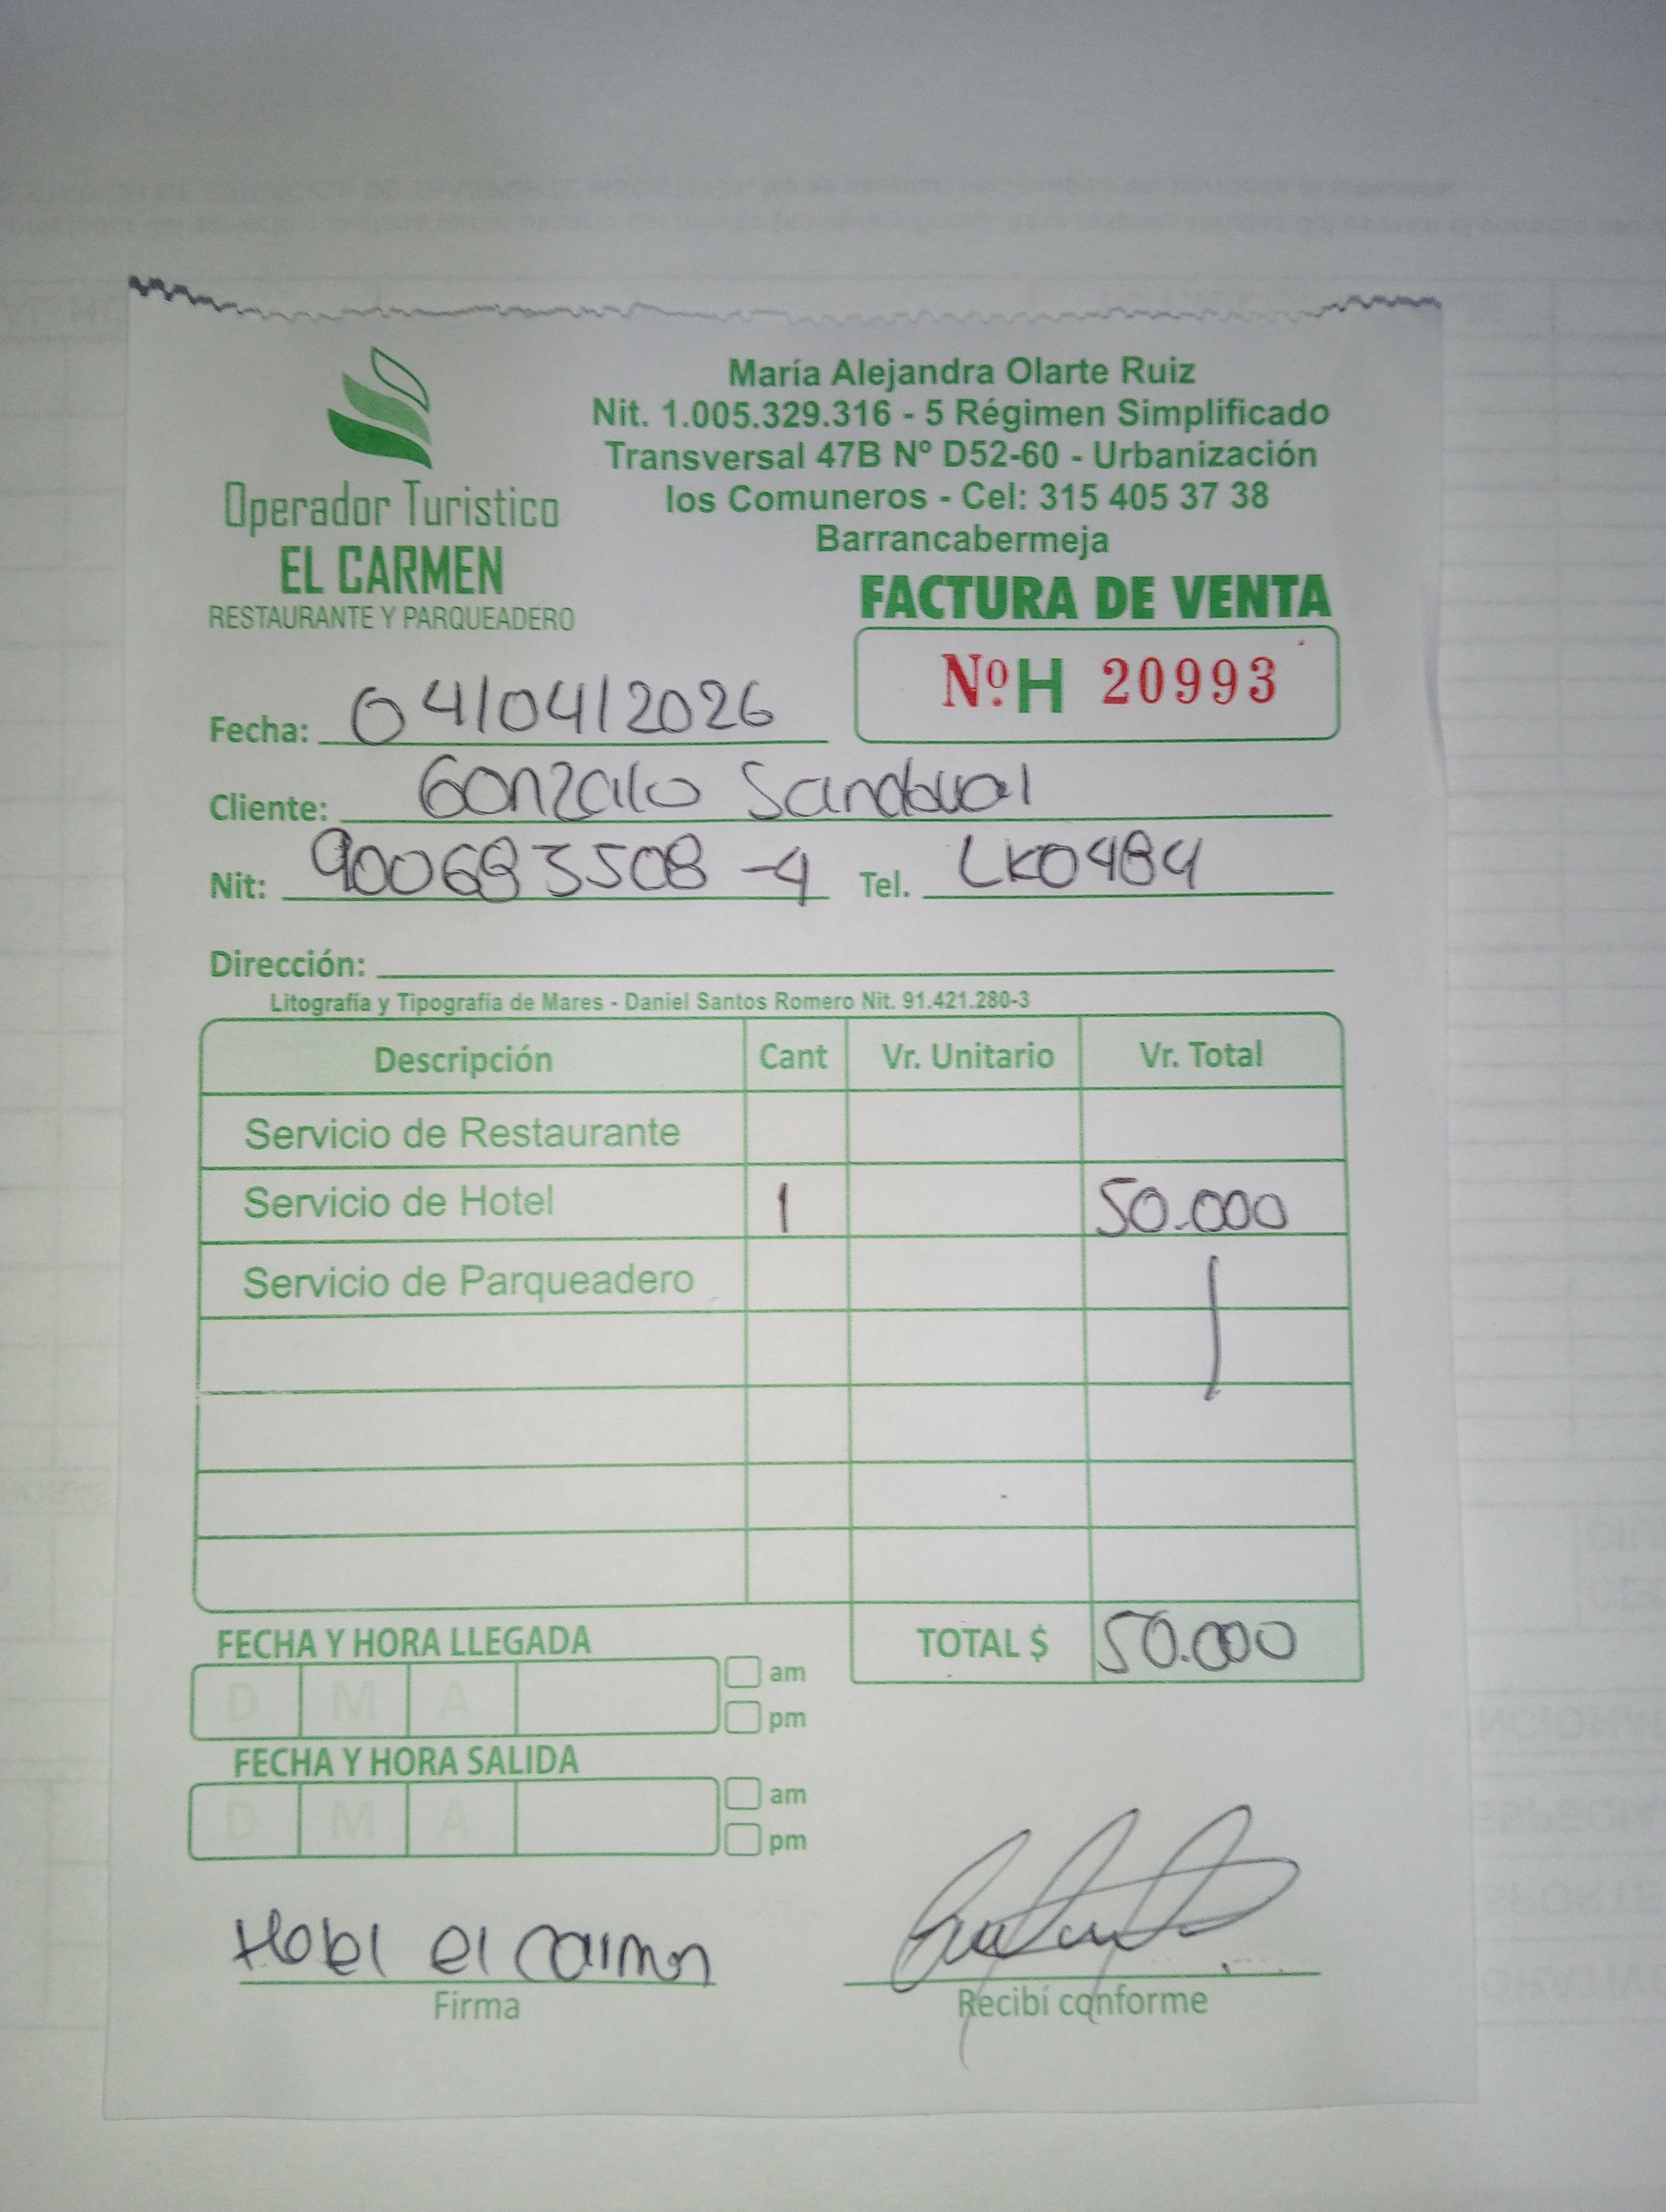 María Alejandra Olarte Ruiz
Nit. 1.005.329.316 - 5 Régimen Simplificado
Transversal 47B Nº D52-60 - Urbanización
los Comuneros - Cel: 315 405 37 38
Barrancabermeja
Operador Turistico
EL CARMEN
RESTAURANTE Y PARQUEADERO
FACTURA DE VENTA
Nº H 20993
Fecha: 04/04/2026
Cliente: Gonzalo Sandoval
Nit: 900683508-4 Tel. LKO484
Dirección:
Litografía y Tipografía de Mares - Daniel Santos Romero Nit. 91.421.280-3
Descripción Cant Vr. Unitario Vr. Total
Servicio de Restaurante
Servicio de Hotel 1 50.000
Servicio de Parqueadero
TOTAL $ 50.000
FECHA Y HORA LLEGADA
D M A am
pm
FECHA Y HORA SALIDA
D M A am
pm
Hotel el Carmen
Firma
Recibí conforme